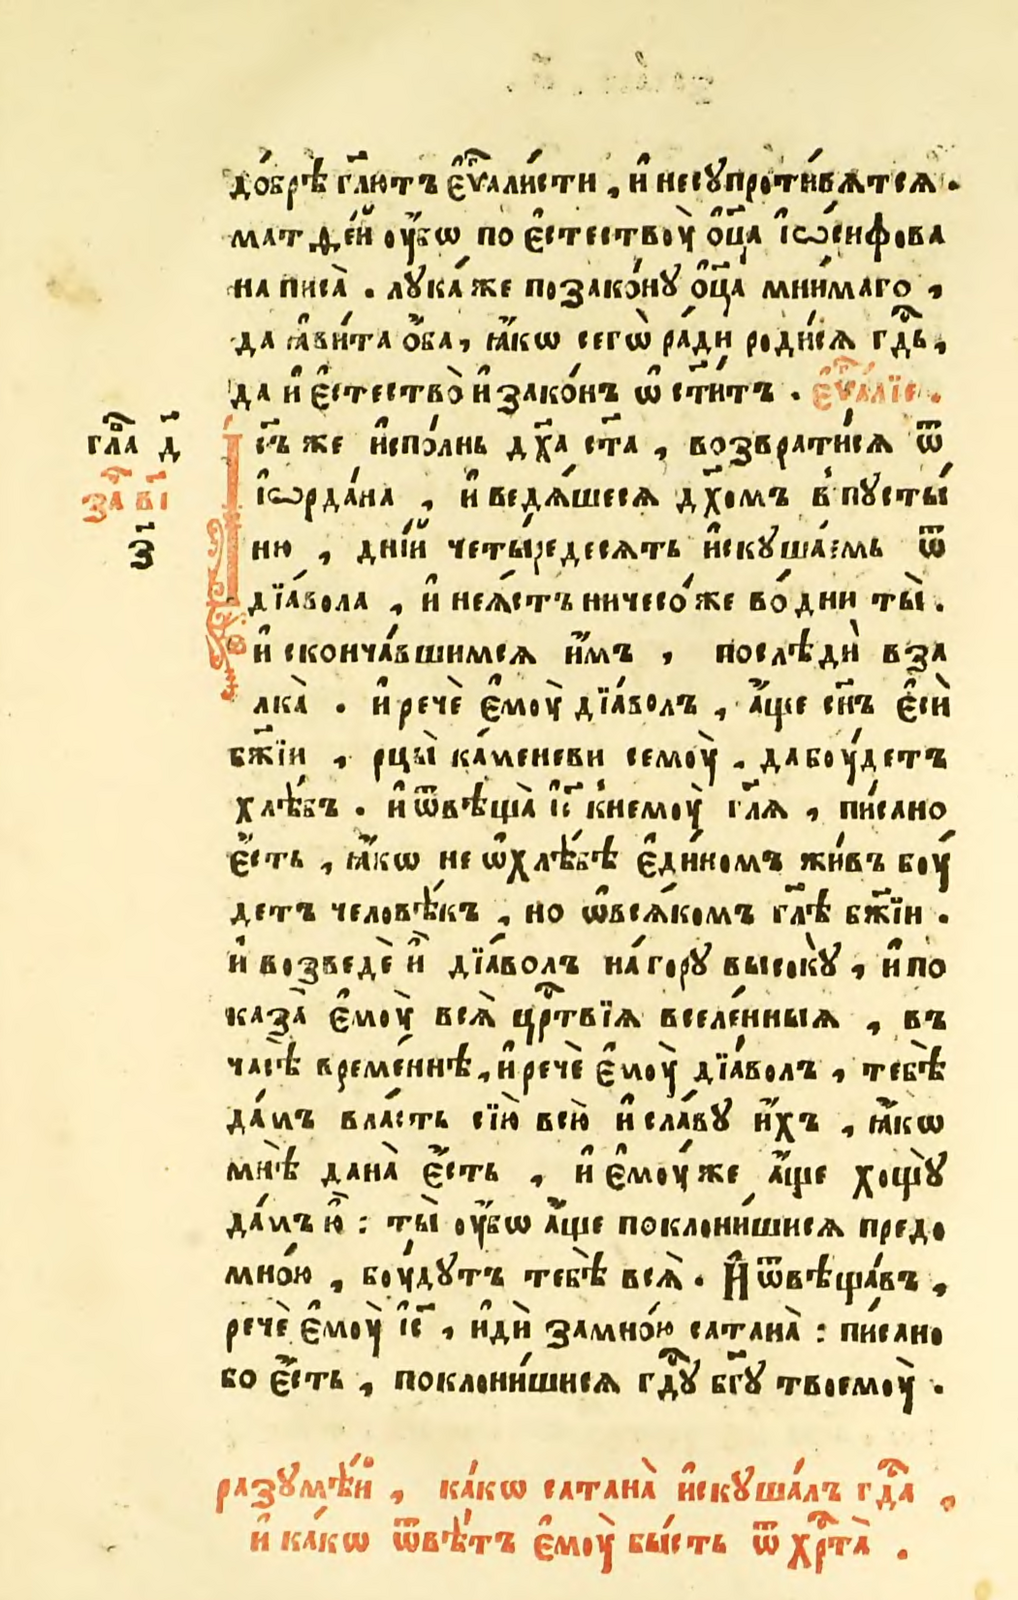 до́брѣ гл҃ютъ є҆ѵⷢ҇али́сти , и҆ несупроти́вѧтсѧ .
матѳе́й оу҆́бѡ по є҆стествоу̀ ѻ҆ц҃а̀ і҆ѡ́сифова
написа̀ . лука́ же позако́ну ѻ҆ц҃а̀ мни́маго ,
да ꙗ҆ви́та ѻ҆́ба , ꙗ҆́кѡ сегѡ̀ ра́ди роди́сѧ гдⷭ҇ь ,
да и҆ є҆стество̀ и҆ зако́нъ ѡ҆ст҃и́тъ . є҆ѵⷢ҇а́лїе .
глаⷡ҇ д҃
І҆с҃ъ же и҆спо́лнь дх҃а ст҃а , возврати́сѧ ѿ
заⷱ҇ в҃і
і҆ѡрда́на , и҆ ведѧ́шесѧ дх҃омъ в̾ пусты́
ню , дні́й четы́редесѧть и҆скуша́емь ѿ
з҃і
дїа́вола , и҆ не ꙗ҆́стъ ничесо́же во́ дни ты̀ .
и҆ сконча́вшимсѧ и҆̀мъ , послѣдѝ вза
лка̀ . и҆ речѐ є҆моу̀ дїа́волъ , а҆́ще сн҃ъ є҆сѝ
бж҃їи , рцы̀ ка́меневи семоу̀ . да боу́детъ
хлѣ́бъ . и҆ ѿвѣща̀ і҆с҃ к̾немоу̀ гл҃ѧ , пи́сано
є҆́сть , ꙗ҆́кѡ не ѡ҆ хлѣ́бѣ є҆ди́номъ жи́въ боу́
детъ человѣ́къ , но ѡ҆ всѧ́комъ гл҃ѣ бж҃їи .
и҆ возведѐ и҆̀ дїа́волъ на́ гору высокꙋ̀ , и҆ по
каза̀ є҆моу̀ всѧ̀ црⷭ҇твїѧ вселе́нныѧ , въ
ча́сѣ вре́меннѣ , и҆ речѐ є҆моу̀ дїа́волъ , тебѣ̀
да́мъ вла́сть сїю̀ всю̀ и҆ сла́ву и҆́хъ , ꙗ҆́кѡ
мнѣ̀ дана̀ є҆́сть , и҆ є҆моу́же а҆́ще хощу̀
да́мъ ю҆̀ : ты̀ оу҆́бѡ а҆́ще поклони́шисѧ предо
мно́ю , боу́дутъ тебѣ̀ всѧ̀ . И҆ ѿвѣща́въ ,
речѐ є҆моу̀ і҆с҃ , и҆дѝ замно́ю сатана̀ : пи́сано
бо є҆́сть , поклони́шисѧ гдⷭ҇у бг҃у твоемоу̀ .
разумѣ́й , ка́кѡ сатана̀ и҆скуша́лъ гдⷭ҇а ,
и҆ ка́кѡ ѿвѣ́тъ є҆моу̀ бы́сть ѿ хрⷭ҇та̀ .